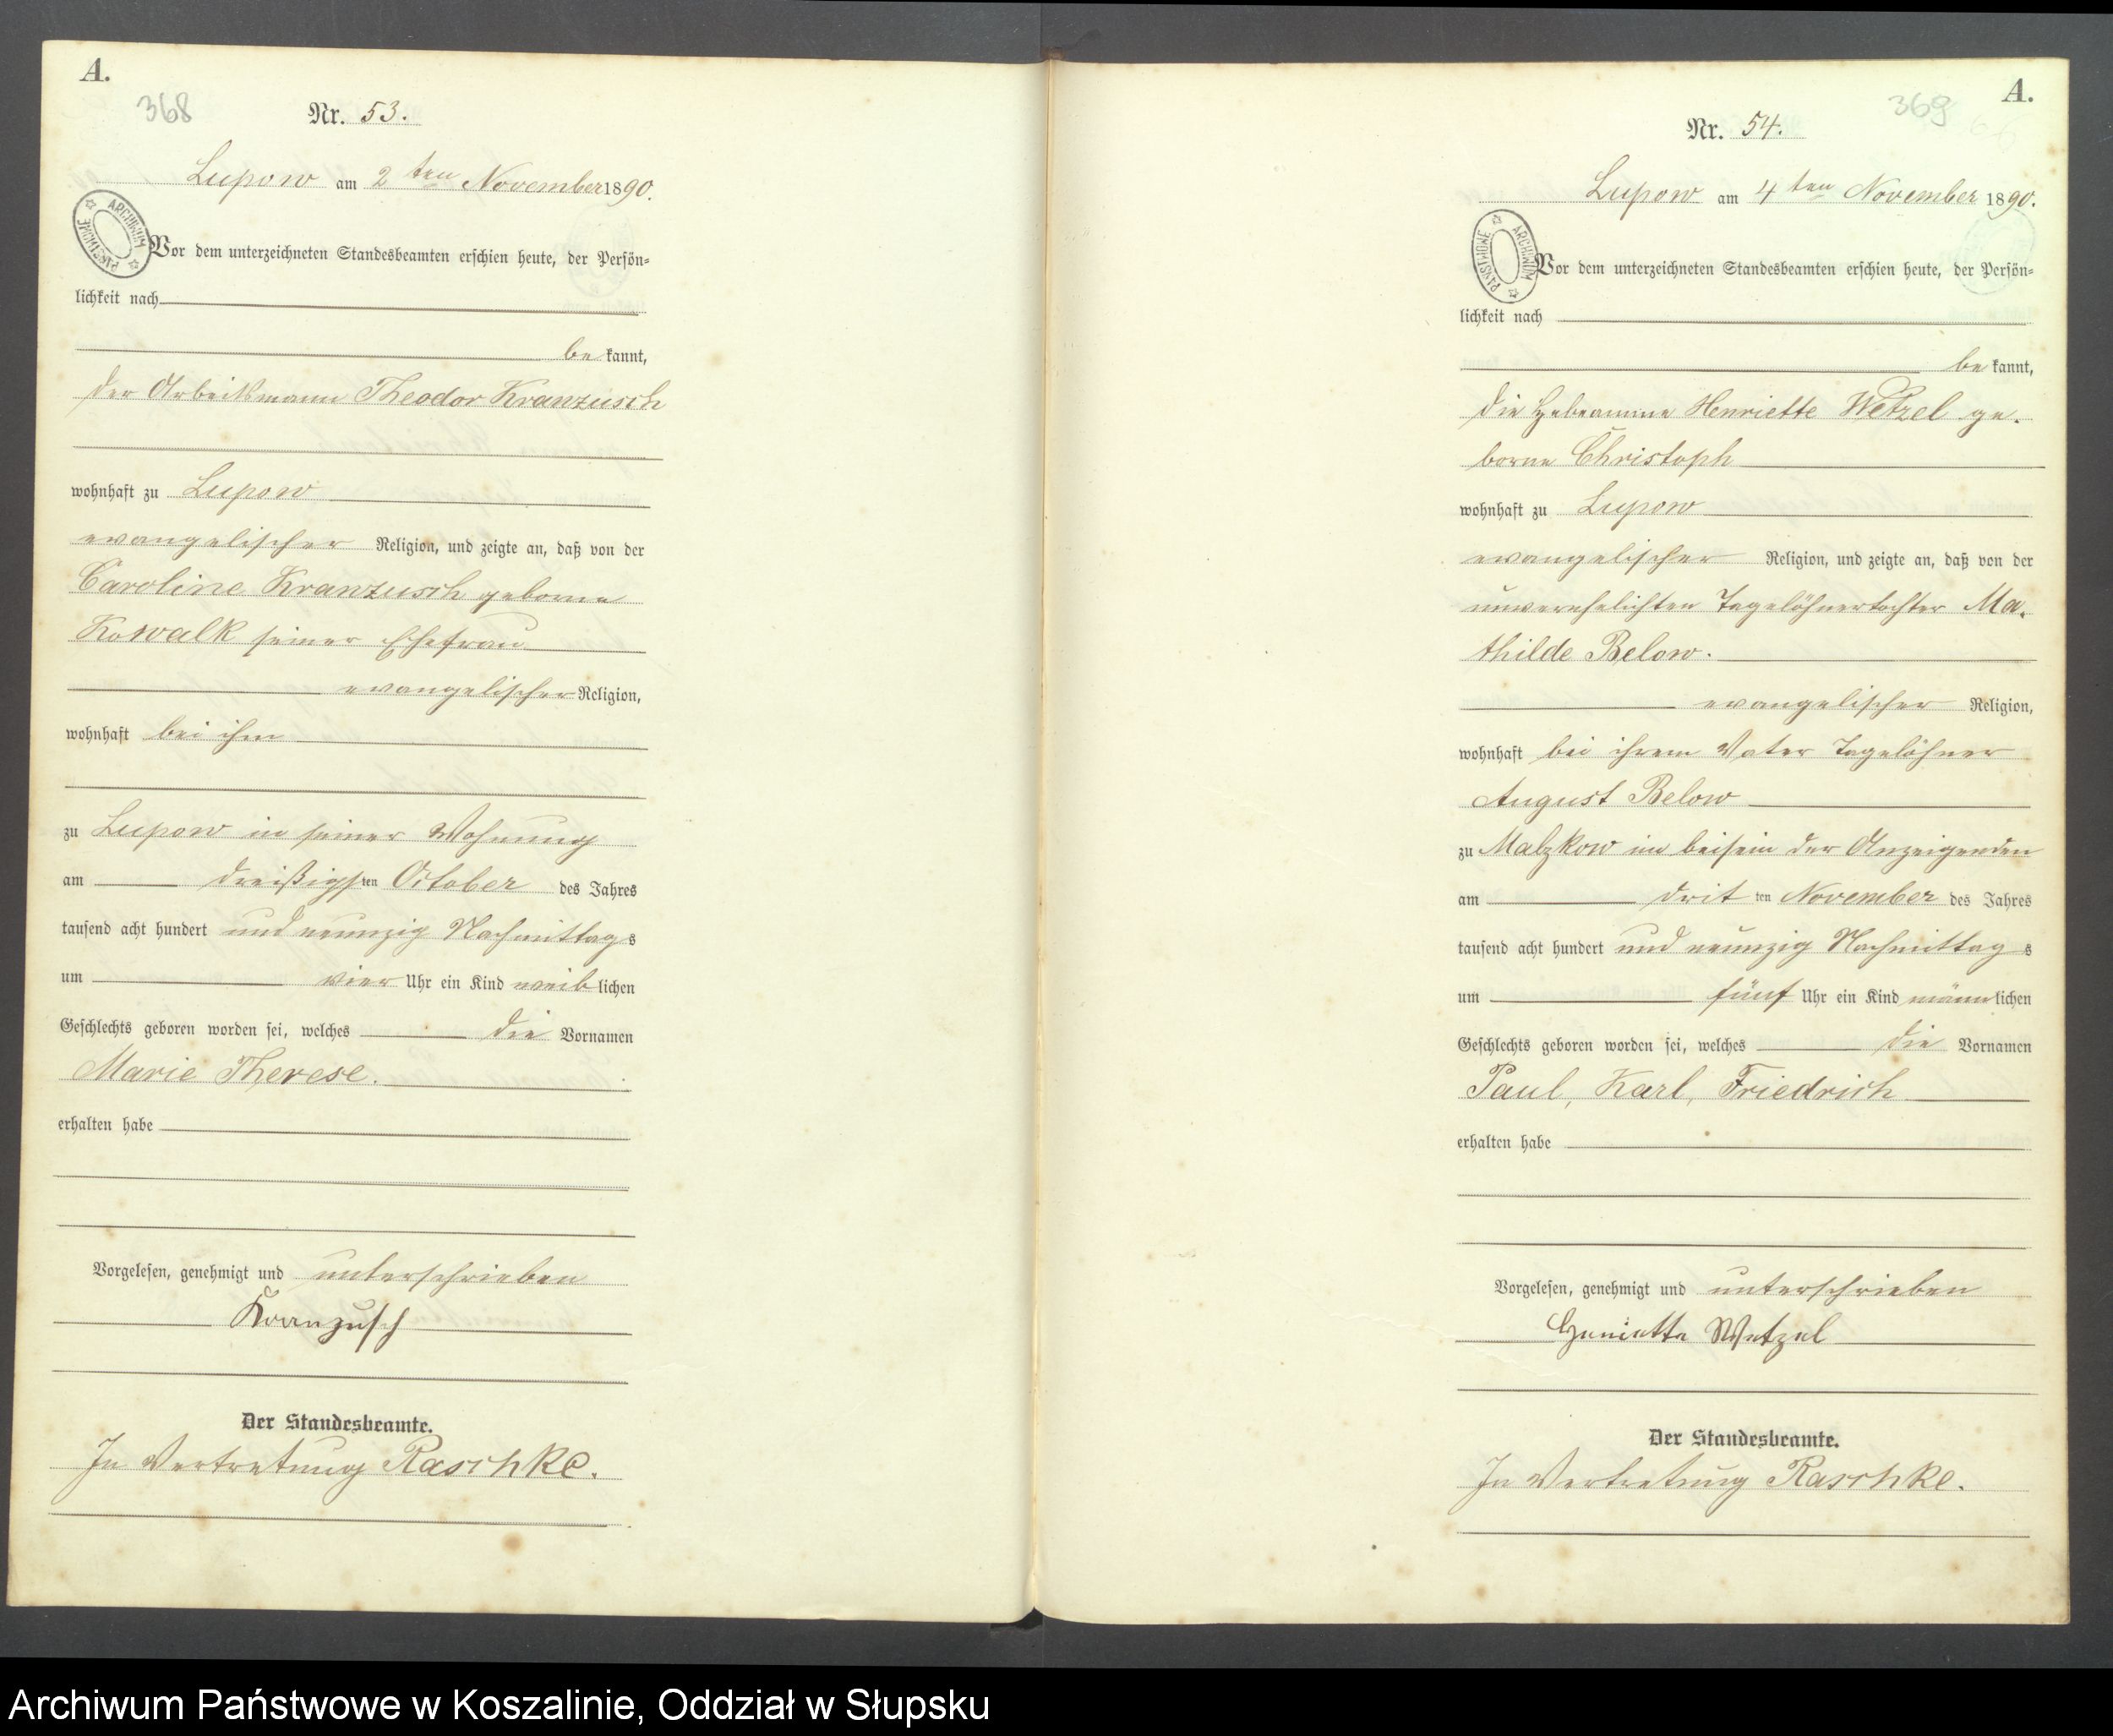 A.
368
Nr. 53.
Lupow am 2ten November 1890.
ARCHIWUM PAŃSTWOWE
Vor dem unterzeichneten Standesbeamten erschien heute, der Persön-
lichkeit nach
be kannt,
der Arbeitsmann Theodor Kranzusch
wohnhaft zu Lupow
evangelischer Religion, und zeigte an, daß von der
Caroline Kranzusch geborne
Kowalk seiner Ehefrau
evangelischer Religion,
wohnhaft bei ihm
zu Lupow in seiner Wohnung
am dreißigsten October des Jahres
tausend acht hundert und neunzig Nachmittags
um vier Uhr ein Kind weiblichen
Geschlechts geboren worden sei, welches die Vornamen
Marie Therese.
erhalten habe
Vorgelesen, genehmigt und unterschrieben
Kranzusch
Der Standesbeamte.
In Vertretung Raschke.
A.
369
Nr. 54.
Lupow am 4ten November 1890.
ARCHIWUM PAŃSTWOWE
Vor dem unterzeichneten Standesbeamten erschien heute, der Persön-
lichkeit nach
be kannt,
die Hebeamme Henriette Wetzel ge-
borne Christoph
wohnhaft zu Lupow
evangelischer Religion, und zeigte an, daß von der
unverehelichten Tagelöhnertochter Ma-
thilde Below.
evangelischer Religion,
wohnhaft bei ihrem Vater Tagelöhner
August Below
zu Malzkow im beisein der Anzeigenden
am dritten November des Jahres
tausend acht hundert und neunzig Nachmittags
um fünf Uhr ein Kind männlichen
Geschlechts geboren worden sei, welches die Vornamen
Paul, Karl, Friedrich
erhalten habe
Vorgelesen, genehmigt und unterschrieben
Henriette Wetzel
Der Standesbeamte.
In Vertretung Raschke.
Archiwum Państwowe w Koszalinie, Oddział w Słupsku